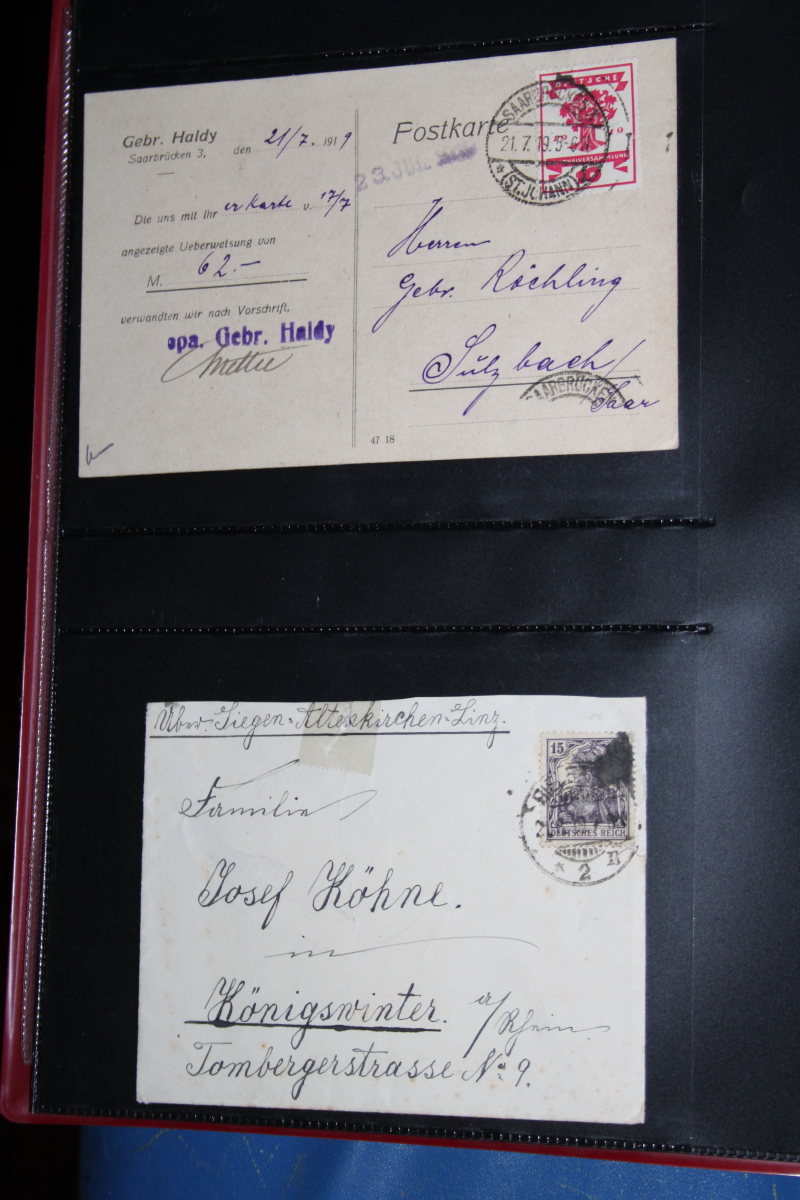 Gebr. Haldy
Saarbrücken 3, den 21/7. 1919
Die uns mit Ihrer Karte v. 17/7
angezeigte Ueberweisung von
M. 62.-
verwandten wir nach Vorschrift.
ppa. Gebr. Haldy
Postkarte
23. JULI
DEUTSCHE
NATIONALVERSAMMLUNG
10
SAARBRÜCKEN
21.7.19.5-6 N
* (ST. JOHANN)
Herren
Gebr. Röchling
Sulzbach/
Saar
SAARBRÜCKEN
47 18
Über Siegen=Altenkirchen=Linz.
15
DEUTSCHES REICH
* 2 n
Familie
Josef Köhne.
in
Königswinter. a/Rhein
Tombergerstrasse No 9.